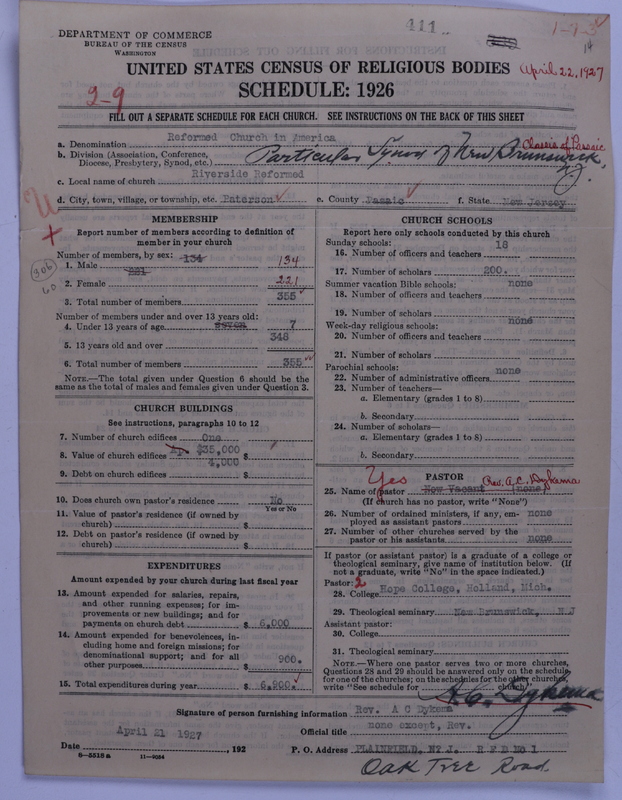 411
1-7-3
14
DEPARTMENT OF COMMERCE
BUREAU OF THE CENSUS
WASHINGTON
UNITED STATES CENSUS OF RELIGIOUS BODIES
April 22, 1927
SCHEDULE: 1926
2-9
FILL OUT A SEPARATE SCHEDULE FOR EACH CHURCH. SEE INSTRUCTIONS ON THE BACK OF THIS SHEET
a. Denomination Reformed Church in America
Classis of Passaic
b. Division (Association, Conference, Diocese, Presbytery, Synod, etc.) Particular Synod of New Brunswick, N.J.
c. Local name of church Riverside Reformed
d. City, town, village, or township, etc. Paterson e. County Passaic f. State New Jersey
MEMBERSHIP
Report number of members according to definition of
member in your church
Number of members, by sex: 134
1. Male 134
221
2. Female 221
3. Total number of members 355
306
60
Number of members under and over 13 years old:
4. Under 13 years of age seven 7
5. 13 years old and over 348
6. Total number of members 355
NOTE.—The total given under Question 6 should be the
same as the total of males and females given under Question 3.
CHURCH BUILDINGS
See instructions, paragraphs 10 to 12
7. Number of church edifices One
8. Value of church edifices $35,000 $
4,000
9. Debt on church edifices $
10. Does church own pastor's residence No
Yes or No
11. Value of pastor's residence (if owned by
church) $
12. Debt on pastor's residence (if owned by
church) $
EXPENDITURES
Amount expended by your church during last fiscal year
13. Amount expended for salaries, repairs,
and other running expenses; for im-
provements or new buildings; and for
payments on church debt $ 6,000
14. Amount expended for benevolences, in-
cluding home and foreign missions; for
denominational support; and for all
other purposes $ 900.
15. Total expenditures during year $ 6,900.
CHURCH SCHOOLS
Report here only schools conducted by this church
Sunday schools: 18
16. Number of officers and teachers
17. Number of scholars 200.
Summer vacation Bible schools: none
18. Number of officers and teachers
19. Number of scholars none
Week-day religious schools:
20. Number of officers and teachers
21. Number of scholars
Parochial schools: none
22. Number of administrative officers
23. Number of teachers—
a. Elementary (grades 1 to 8)
b. Secondary
24. Number of scholars—
a. Elementary (grades 1 to 8)
b. Secondary
Yes PASTOR Rev. A.C. Dykema
25. Name of pastor Now Vacant (none)
(If church has no pastor, write "None")
26. Number of ordained ministers, if any, em-
ployed as assistant pastors none
27. Number of other churches served by the
pastor or his assistants none
If pastor (or assistant pastor) is a graduate of a college or
theological seminary, give name of institution below. (If
not a graduate, write "No" in the space indicated.)
Pastor: 2
28. College Hope College, Holland, Mich.
29. Theological seminary New Brunswick, N J
Assistant pastor:
30. College
31. Theological seminary
NOTE.—Where one pastor serves two or more churches,
Questions 28 and 29 should be answered only on the schedule
for one of the churches; on the schedules for the other churches,
write "See schedule for church"
A. C. Dykema
Signature of person furnishing information Rev. A C Dykema
Official title none except, Rev.
Date April 21 1927, 192 P. O. Address PLAINFIELD, N J. R F D No 1
8-5515a 11-9054
Oak Tree Road.